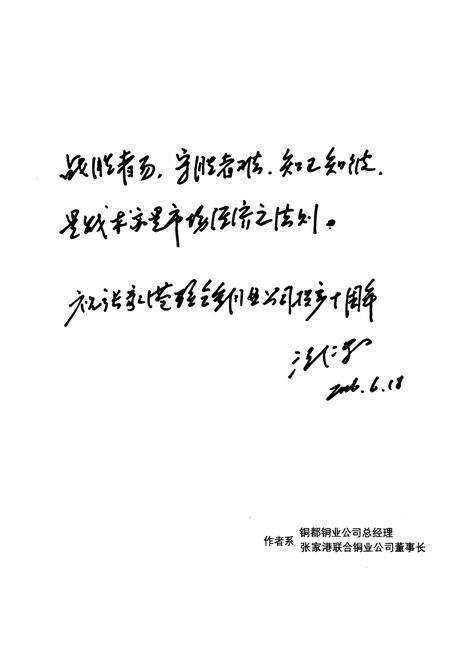 战胜者易，守胜者难，知己知彼，
是战术亦是市场经济之法则。
祝张家港联合铜业公司投产十周年
汪仁
2006.6.18
作者系
铜都铜业公司总经理
张家港联合铜业公司董事长